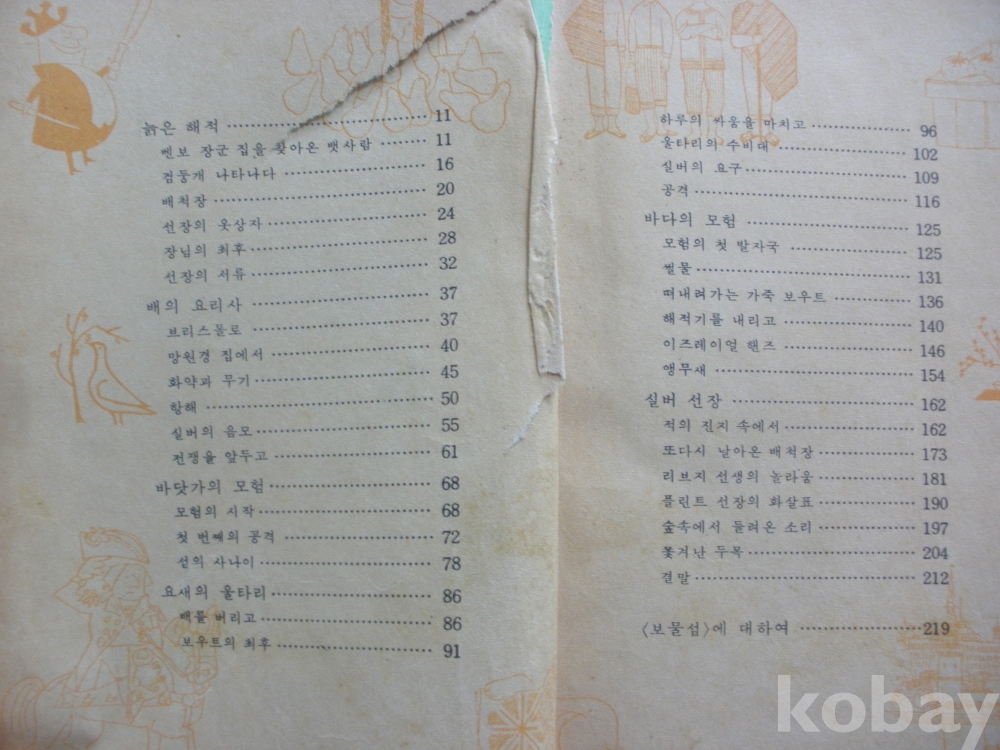 늙은 해적 11
벤보 장군 집을 찾아온 뱃사람 11
검둥개 나타나다 16
배척장 20
선장의 옷상자 24
장님의 최후 28
선장의 서류 32
배의 요리사 37
브리스톨로 37
망원경 집에서 40
화약과 무기 45
항해 50
실버의 음모 55
전쟁을 앞두고 61
바닷가의 모험 68
모험의 시작 68
첫 번째의 공격 72
섬의 사나이 78
요새의 울타리 86
배를 버리고 86
보우트의 최후 91
하루의 싸움을 마치고 96
울타리의 수비대 102
실버의 요구 109
공격 116
바다의 모험 125
모험의 첫 발자국 125
썰물 131
떠내려가는 가죽 보우트 136
해적기를 내리고 140
이즈레이얼 핸즈 146
앵무새 154
실버 선장 162
적의 진지 속에서 162
또다시 날아온 배척장 173
리브지 선생의 놀라움 181
플린트 선장의 화살표 190
숲속에서 들려온 소리 197
쫓겨난 두목 204
결말 212
〈보물섬〉에 대하여 219
kobay